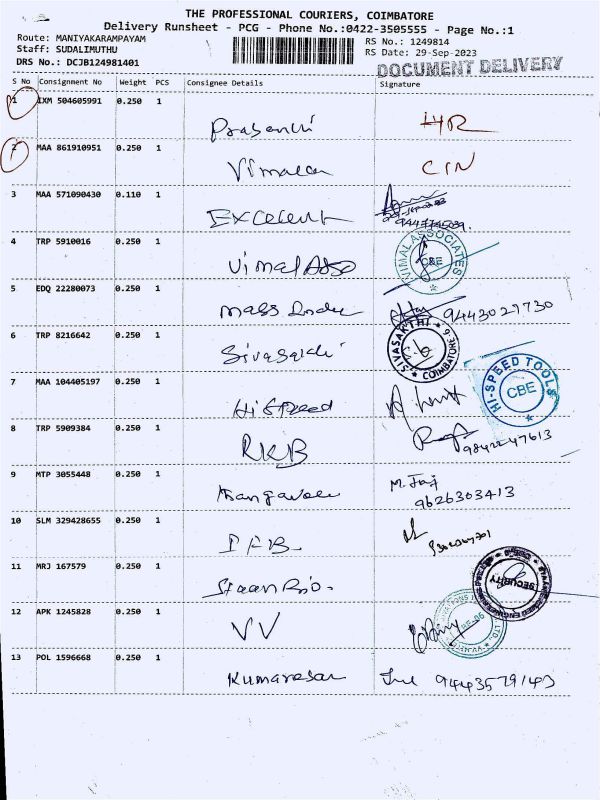 THE PROFESSIONAL COURIERS, COIMBATORE
Delivery Runsheet - PCG - Phone No.:0422-3505555 - Page No.:1
Route: MANIYAKARAMPAYAM RS No.: 1249814
Staff: SUDALIMUTHU RS Date: 29-Sep-2023
DRS No.: DCJB124981401 DOCUMENT DELIVERY
S No Consignment No Weight PCS Consignee Details Signature
1 IXM 504605991 0.250 1
Prasanthi HR
2 MAA 861910951 0.250 1
Vimala CIN
3 MAA 571090430 0.110 1
Excelent
4 TRP 5910016 0.250 1
Vimal Asso VIMAL ASSOCIATES CBE
5 EDQ 22280073 0.250 1
Mass 9443029730
6 TRP 8216642 0.250 1
Sivasakthi SIVASAKTHI COIMBATORE-6
7 MAA 104405197 0.250 1
Hi Speed HI-SPEED TOOLS CBE
8 TRP 5909384 0.250 1
RKB 9842247613
9 MTP 3055448 0.250 1
Thangavel M. 9626303413
10 SLM 329428655 0.250 1
IFB
11 MRJ 167579 0.250 1
SECURITY
12 APK 1245828 0.250 1
VV
13 POL 1596668 0.250 1
Kumaresan 9443579143